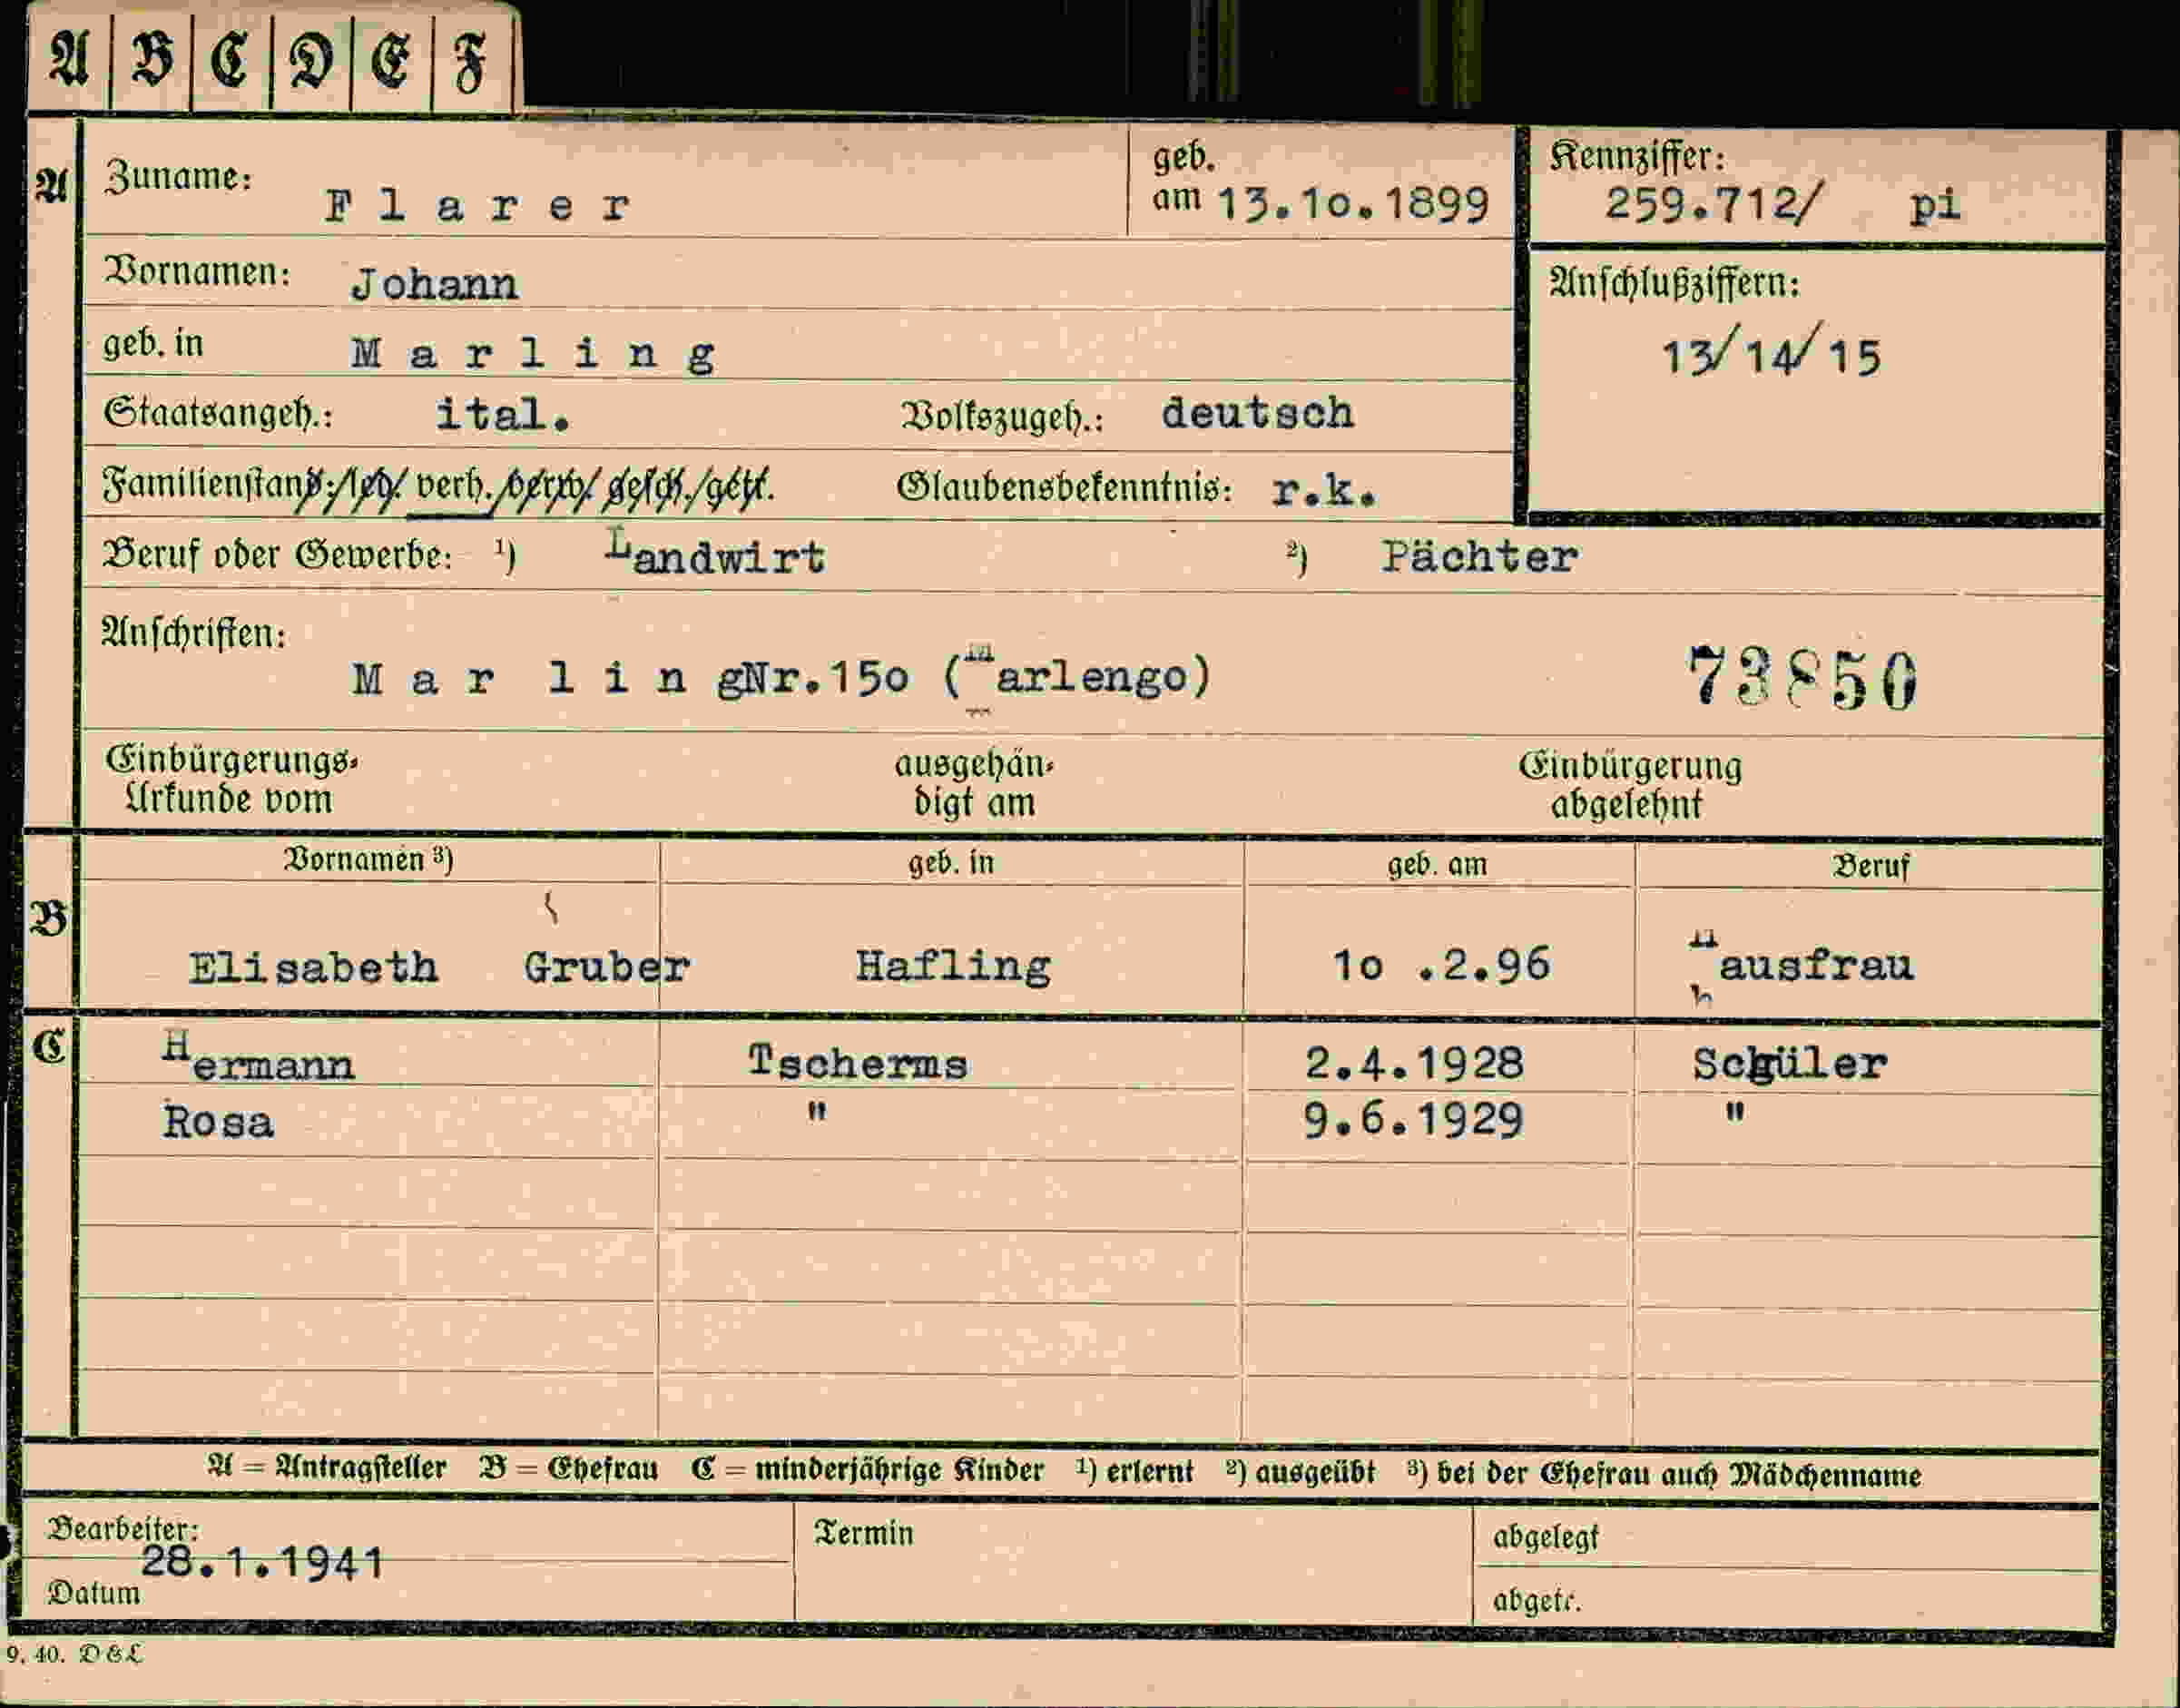 A B C D E F
A Zuname: Flarer geb. am 13.10.1899 Kennziffer: 259.712/ pi
Vornamen: Johann Anschlußziffern:
geb. in Marling 13/14/15
Staatsangeh.: ital. Volkszugeh.: deutsch
Familienstand: led. verh. verw. gesch. get. Glaubensbekenntnis: r.k.
Beruf oder Gewerbe: 1) Landwirt 2) Pächter
Anschriften:
Mar lingNr.150 (Marlengo) 73850
Einbürgerungs- ausgehän- Einbürgerung
Urkunde vom digt am abgelehnt
Vornamen 3) geb. in geb. am Beruf
B Elisabeth Gruber Hafling 10 .2.96 Hausfrau
C Hermann Tscherms 2.4.1928 Schüler
Rosa " 9.6.1929 "
A = Antragsteller B = Ehefrau C = minderjährige Kinder 1) erlernt 2) ausgeübt 3) bei der Ehefrau auch Mädchenname
Bearbeiter: Termin abgelegt
28.1.1941
Datum abgetr.
9. 40. D & L